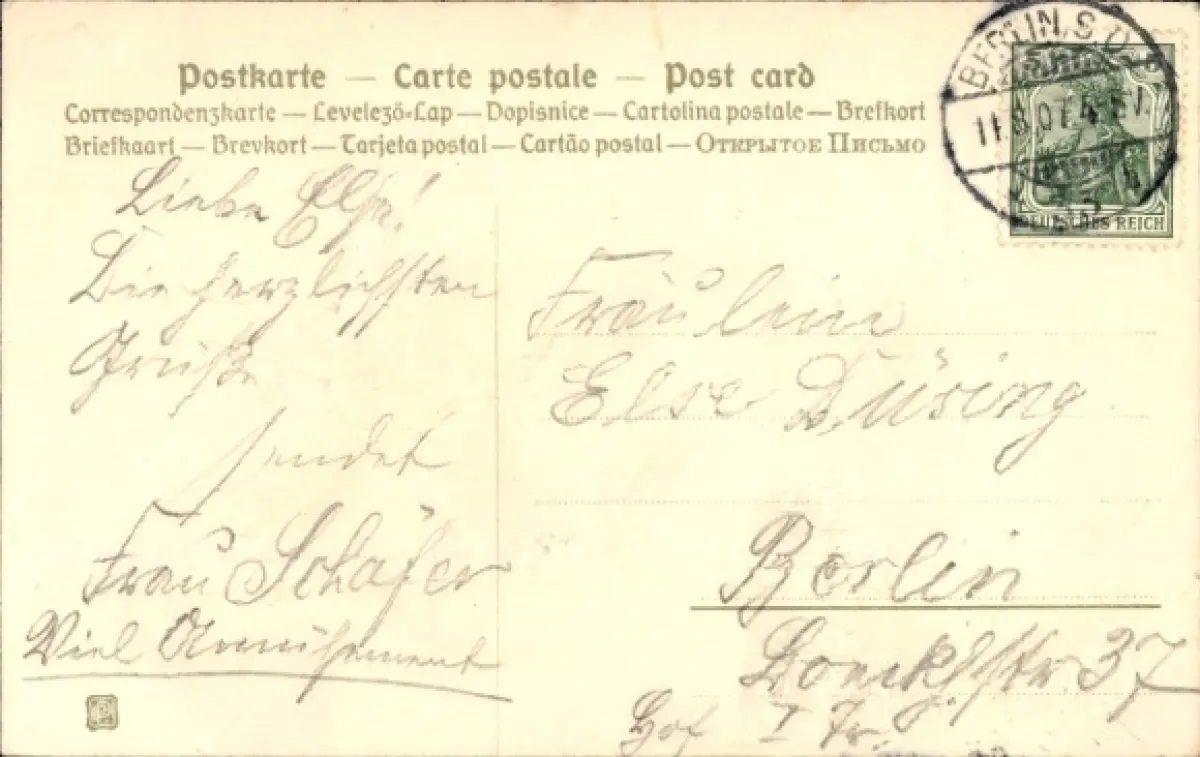 Postkarte — Carte postale — Post card
Correspondenzkarte — Levelező-Lap — Dopisnice — Cartolina postale — Brefkort
Briefkaart — Brevkort — Tarjeta postal — Cartão postal — Открытое Письмо
BERLIN, S.O.
11.8.07.4-5N.
33 h
DEUTSCHES REICH
Liebe Else!
Die herzlichsten
Grüße
sendet
Frau Schäfer
Viel Amüsement
Fräulein
Else Düsing
Berlin
37
Hof I Tr.